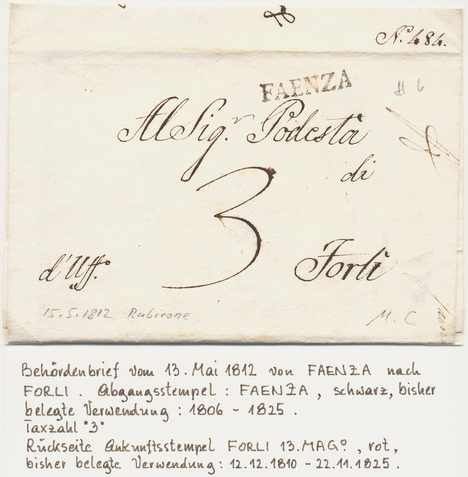 N.° 484.
FAENZA
# 6
Al Sig.r Podestà
di
3
d'Uff.°
Forlì
15.5.1812 Rubicone
M. C
Behördenbrief vom 13. Mai 1812 von FAENZA nach
FORLI. Abgangsstempel: FAENZA, schwarz, bisher
belegte Verwendung: 1806 - 1825.
Taxzahl "3"
Rückseite Ankunftsstempel FORLI 13.MAG°, rot,
bisher belegte Verwendung: 12.12.1810 - 22.11.1825.